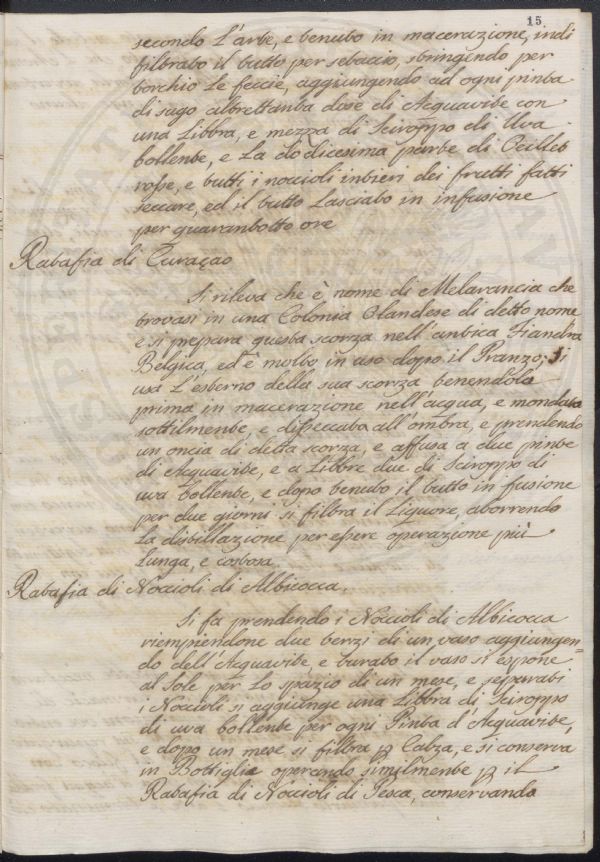 15
secondo l'arte, e tenuto in macerazione, indi
filtrato il tutto per setaccio, stringendo per
torchio le feccie, aggiungendo ad ogni pinta
di sugo altrettanta dose di Acquavite con
una Libbra, e mezza di Sciroppo di Uva
bollente, e La dodicesima parte di Oeillet
rosse, e tutti i noccioli intieri dei frutti fatti
seccare, ed il tutto Lasciato in infusione
per quarantotto ore
Ratafia di Curaçao
Si rileva che è nome di Melarancia che
trovasi in una Colonia Olandese di detto nome
e si prepara questa scorza nell'antica Fiandra
Belgica, ed è molto in uso dopo il Pranzo; Si
usa L'esterno della sua scorza tenendola
prima in macerazione nell'acqua, e mondata
sottilmente, e disseccata all'ombra, e prendendo
un oncia di detta scorza, e affusa a due pinte
di Acquavite, e a Libbre due di Sciroppo di
uva bollente, e dopo tenuto il tutto in fusione
per due giorni si filtra il Liquore, aborrendo
La distillazione per essere operazione più
Lunga, e costosa.
Ratafia di Noccioli di Albicocca.
Si fa prendendo i Noccioli di Albicocca
riempiendone due terzi di un vaso aggiungen=
do dell'Acquavite, e turato il vaso si espone
al Sole per Lo spazio di un mese, e separati
i Noccioli si aggiunge una Libbra di Sciroppo
di uva bollente per ogni Pinta d'Acquavite,
e dopo un mese si filtra p Calza, e si conserva
in Bottiglie operando similmente p il
Ratafia di Noccioli di Pesca, conservando